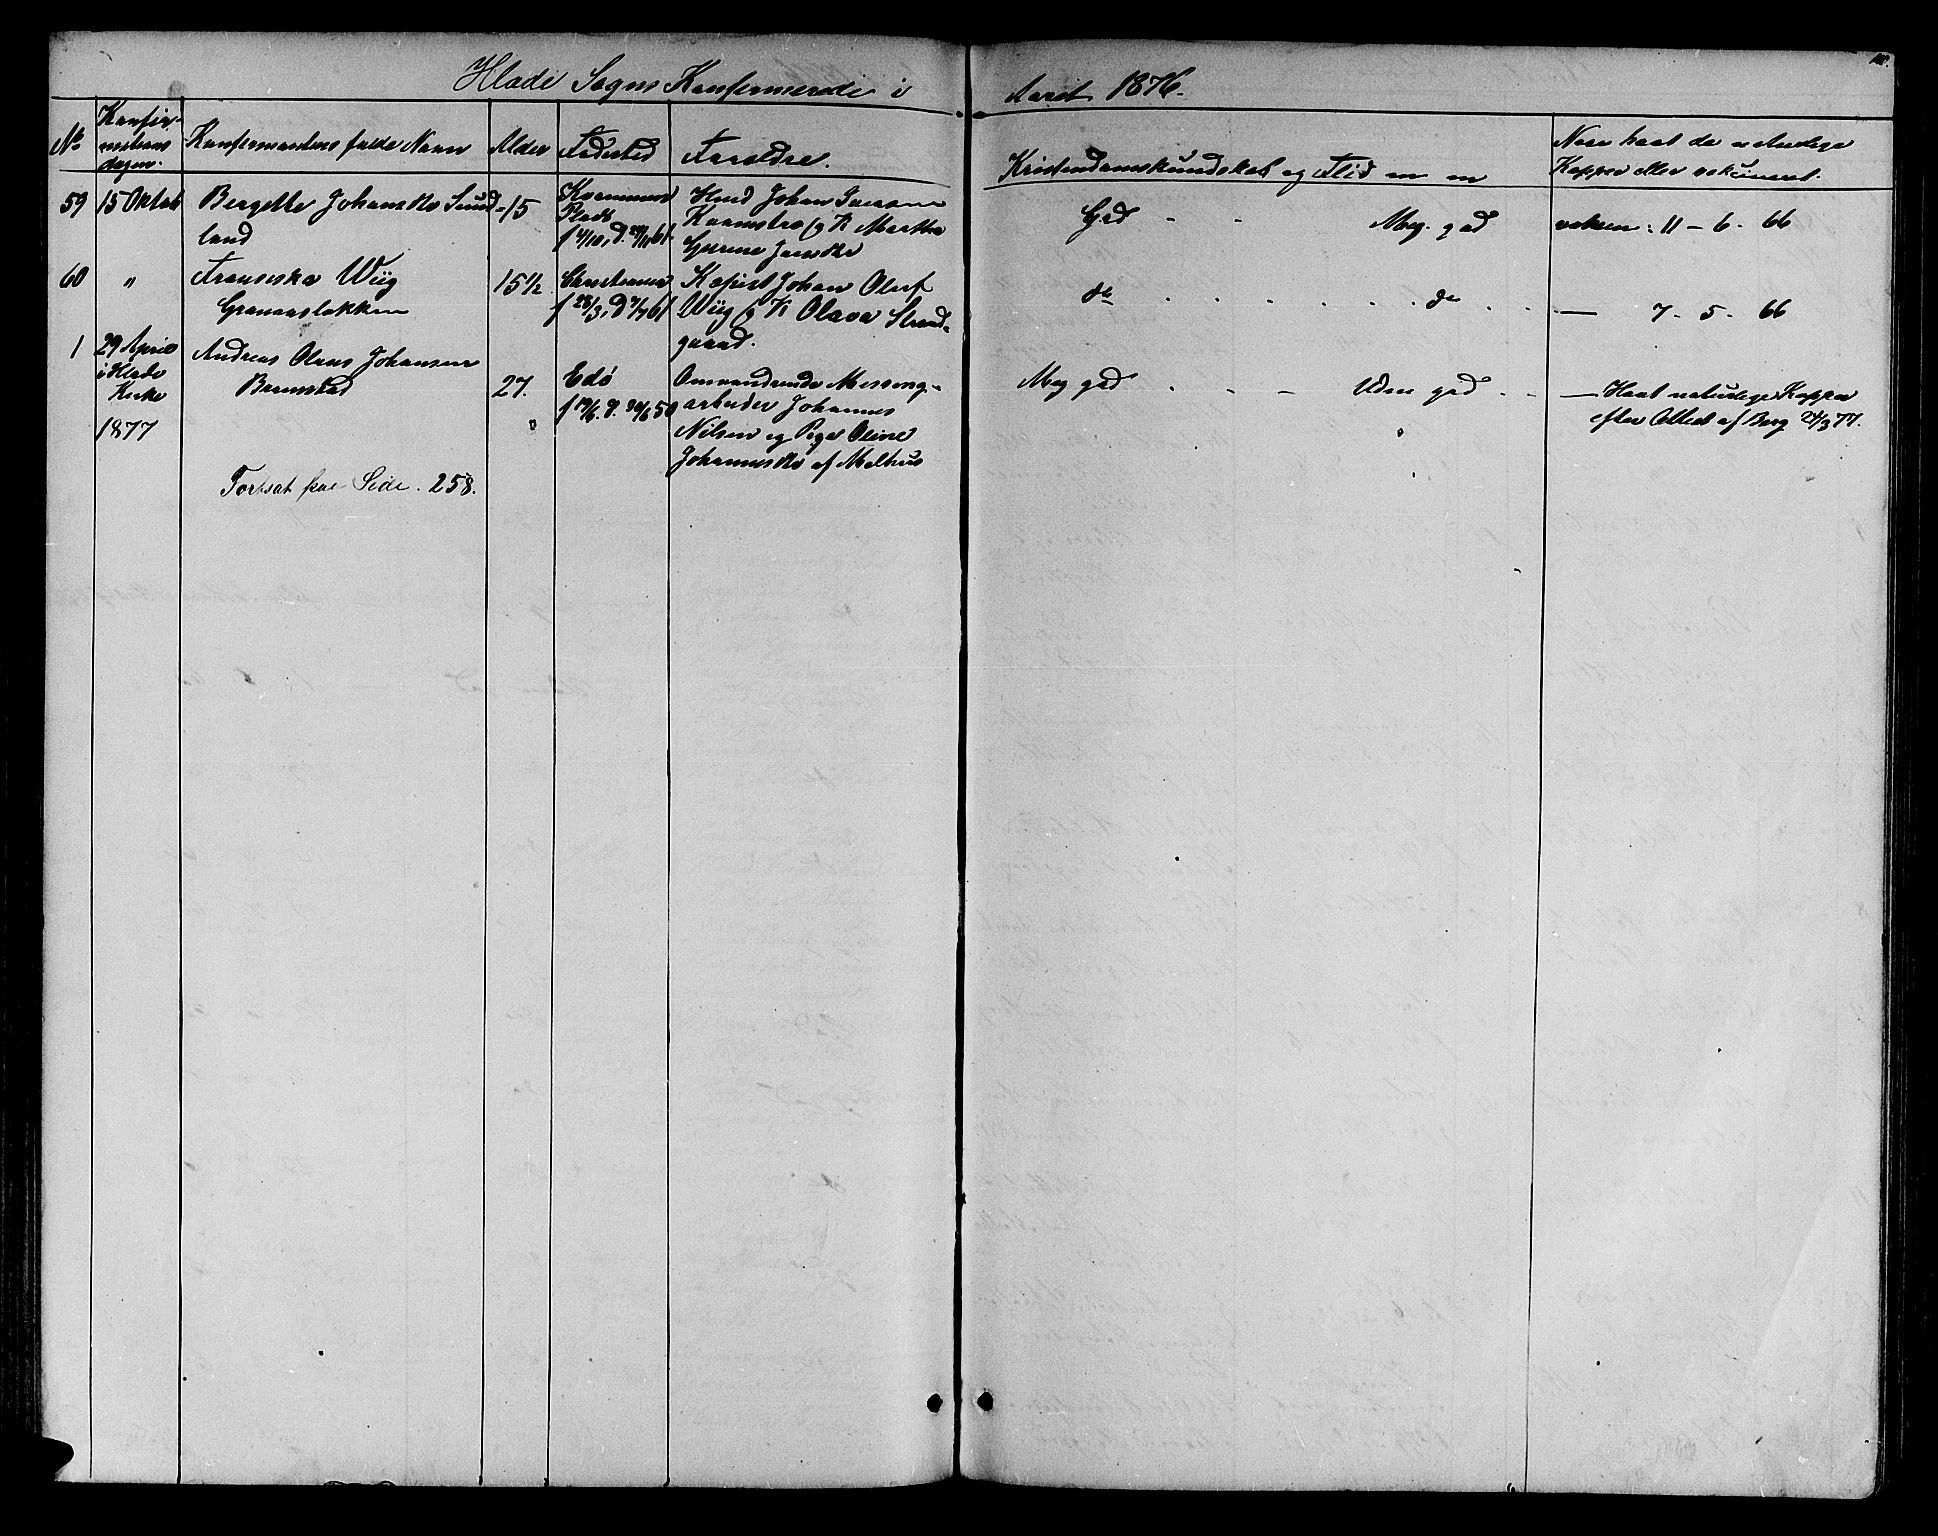 Hlade Sogns Konfirmerede i Aaret 1876.
No Konfir-
mations
dagen. Konfirmantens fulde Navn Alder Fødested Forældre. Kristendomskundskab og Flid m m Naar havt de naturlige
Kopper eller vakcineret.
59 15 Oktob Bergette Johansdtr Sund-
land 15
Plads
f 4/10, D. 61
Hmd Johan
K Martha
Jansdtr
God - - Meg. god vaksin: 11 - 6 - 66
60 " Fransiska Wiig
Granaasløkken 15 1/2 Christiansund
f 28/3, D 61
Kopist Johan Olaf
Wiig og K Olava Strand-
gaard.
do . . . . . do . . — 7 - 5 - 66
1 29 April
i Hlade
Kirke
1877
Andreas Olaus Johansen
27. Edø
f 19/6. D. 30/6 50
Omvandrende Messing-
arbeider Johannes
Nilsen og Pige Oline
Johannesdtr af Melhus
Meg god . - - Uden god . . — Havt naturlige Kopper
efter Attest af Berg 24/3 77.
Fortsat paa Side. 258.